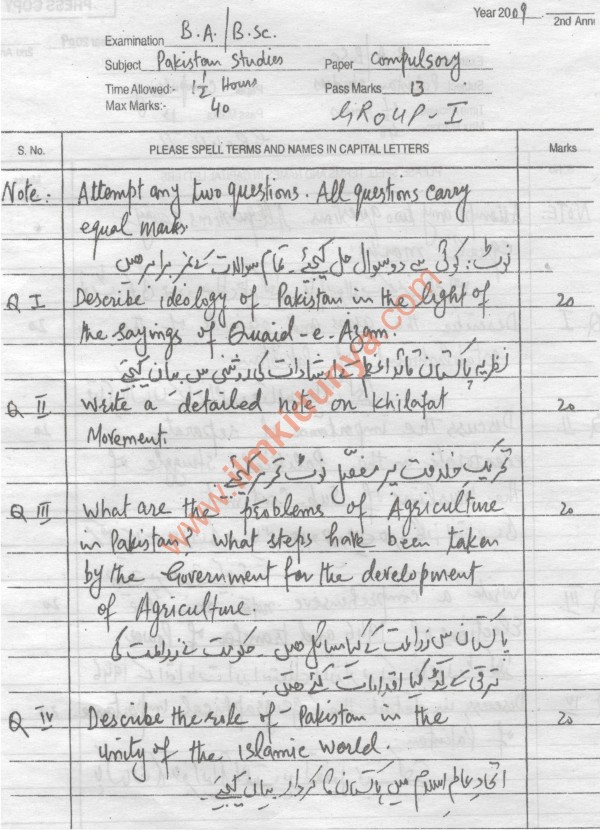 Year 2009
2nd Ann
Examination B.A/B.Sc.
Subject Pakistan Studies Paper Compulsory
Time Allowed:- 1½ Hours Pass Marks 13
Max Marks:- 40 GROUP-I
S. No. PLEASE SPELL TERMS AND NAMES IN CAPITAL LETTERS Marks
Note: Attempt any two questions. All questions carry
equal marks.
نوٹ: کوئی سے دو سوال حل کیجئے۔ تمام سوالات کے نمبر برابر ھیں
Q I Describe ideology of Pakistan in the light of 20
the sayings of Quaid-e-Azam.
نظریہ پاکستان قائداعظم کے ارشادات کی روشنی میں بیان کیجئے
Q II Write a detailed note on Khilafat 20
Movement.
تحریک خلافت پر مفصل نوٹ تحریر کیجئے
Q III What are the problems of Agriculture 20
in Pakistan? What steps have been taken
by the Government for the development
of Agriculture
پاکستان میں زراعت کے کیا مسائل ھیں۔ حکومت نے زراعت کی
ترقی کے لئے کیا اقدامات کئے ھیں۔
Q IV Describe the role of Pakistan in the 20
unity of the Islamic world.
اتحاد عالم اسلام میں پاکستان کا کردار بیان کیجئے
www.ilmkidunya.com